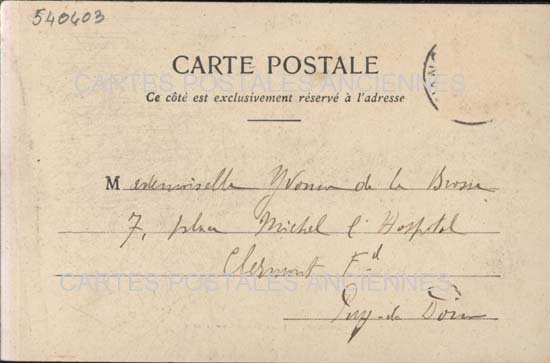 540403
CARTE POSTALE
CARTES POSTALES ANCIENNES
Ce côté est exclusivement réservé à l'adresse
Mademoiselle Yvonne de la Brosse
7, place Michel l'Hospital
Clermont Fd
CARTES POSTALES ANCIENNES
Puy-de Dôme